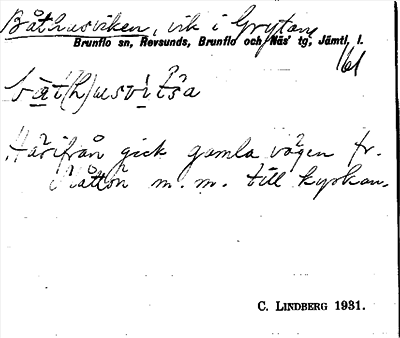 Båthusviken, vik i Grytan
Brunflo sn, Revsunds, Brunflo och Näs' tg, Jämtl. l.
61
båt(h)usvitsa
Härifrån gick gamla vägen fr.
m. m. till kyrkan.
C. LINDBERG 1931.